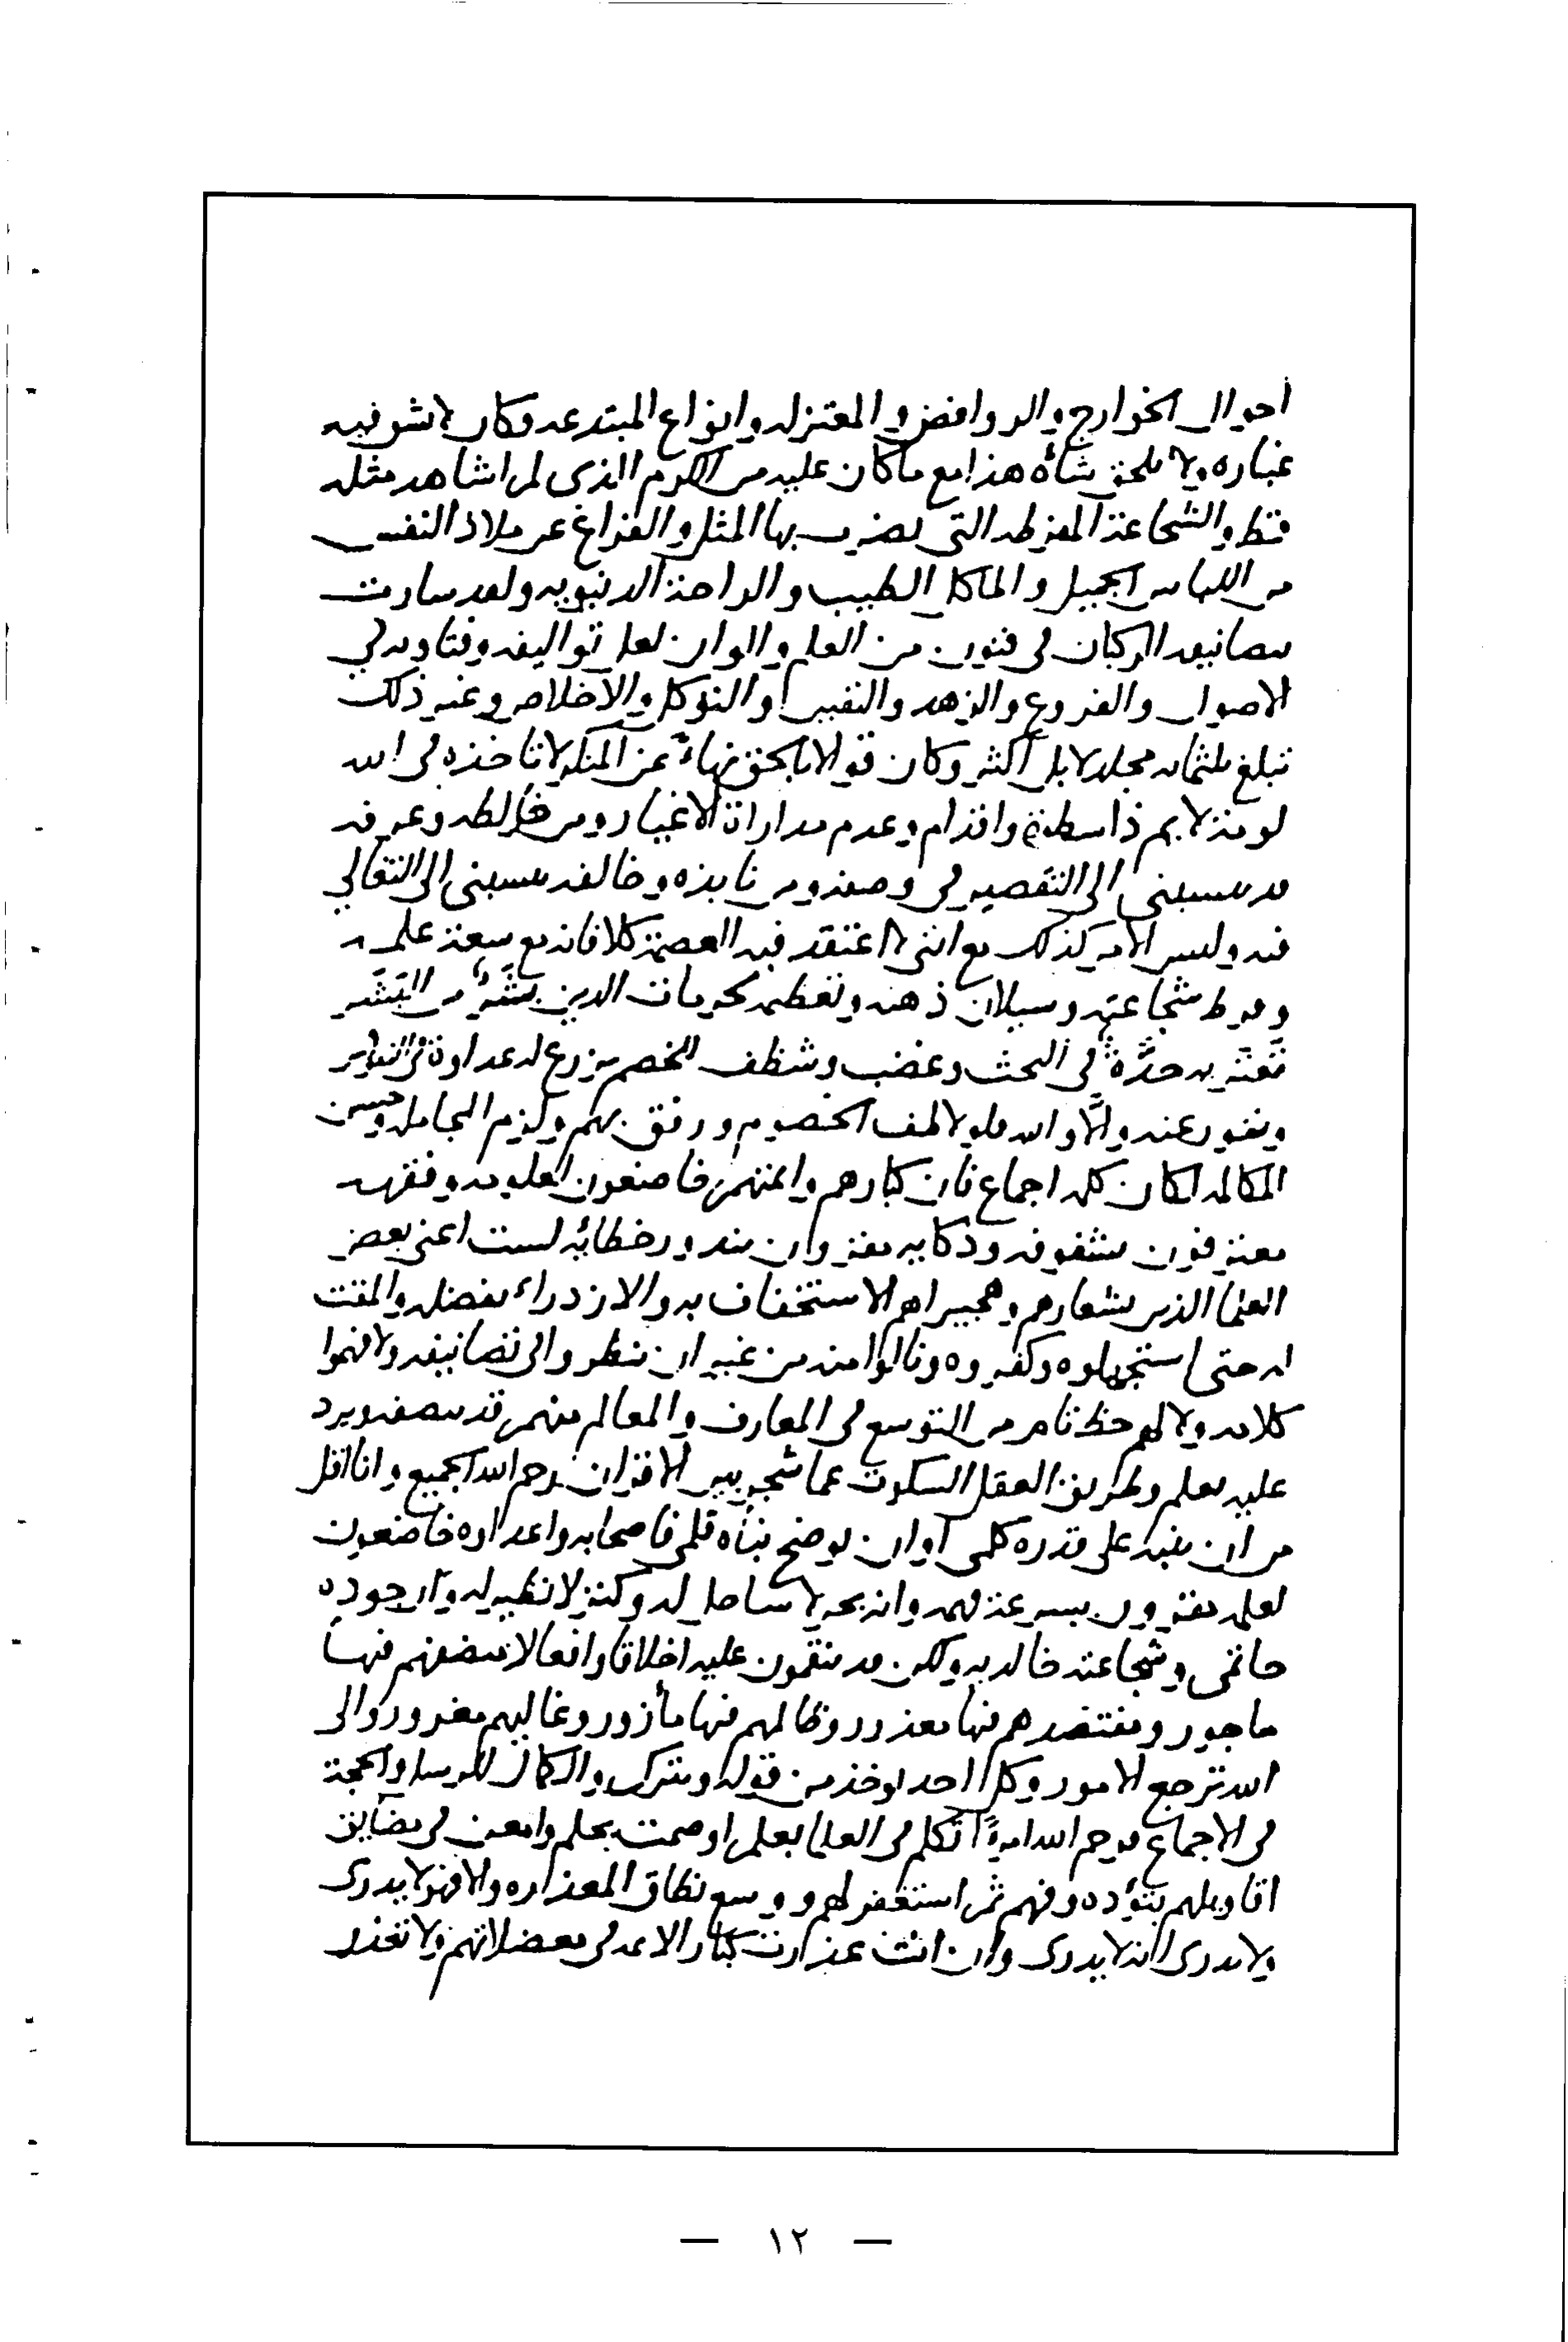 احوال الخوارج والروافض والمعتزله وانواع المبتدعه وكان لا يشق فيه
غباره ولا يلحق شأوه هذا مع ما كان عليه من الكرم الذي لم اشاهد مثله
قط والشجاعة المفرطه التي يضرب بها المثل والفراغ عن ملاذ النفس
من اللباس الجميل والماكل الطيب والراحة الدنيويه ولقد سارت
بتصانيفه الركبان في فنون من العلم والوان لعل تواليفه وفتاويه في
الاصول والفروع والزهد والتفسير والتوكل والاخلاص وغير ذلك
تبلغ ثلثمايه مجلد لا بل اكثر وكان قوالا بالحق نهاء عن المنكر لا تاخذه في الله
لومة لايم ذا سطوة واقدام وعدم مداراة الاغيار ومن خالطه وعرفه
قد ينسبني الى التقصير في وصفه ومن نابذه وخالفه ينسبني الى التغالي
فيه وليس الامر كذلك مع انني لا اعتقد فيه العصمة كلا فانه مع سعة علمه
وفرط شجاعته وسيلان ذهنه وتعظيمه لحرمات الدين بشر من البشر
تعتريه حدة في البحث وغضب وشظف للخصم يزرع له عداوة في النفوس
ونفور عنه والا والله فلو لاطف الخصوم ورفق بهم ولزم المجامله وحسن
المكالمه لكان كلمه اجماع فان كبارهم وائمتهم خاضعون لعلومه وفقهه
معترفون بشفوفه وذكايه مقرون بندور خطائه لست اعني بعض
العلما الذين شعارهم وهجيراهم الاستخفاف به والازدراء بفضله والمقت
له حتى استجهلوه وكفروه ونالوا منه من غير ان ينظروا الى تصانيفه ولا فهموا
كلامه ولا لهم حظ تام من التوسع في المعارف والعالم منهم قد ينصفه ويرد
عليه بعلم وطريق العقل السكوت عما شجر بين الاقران رحم الله الجميع وانا اقل
من ان ينبه على قدره كلمي او ان يوضح نبأه قلمي فاصحابه واعداوه خاضعون
لعلمه مقرون بسرعة فهمه وانه بحر لا ساحل له وكنز لا نظير له وان جوده
حاتمي وشجاعته خالديه ولكن قد ينقمون عليه اخلاقا وافعالا منصفهم فيها
ماجور ومقتصدهم فيها معذور وظالمهم فيها مأزور وغاليهم مغرور والى
الله ترجع الامور وكل احد يوخذ من قوله ويترك والكمال للرسل والحجة
في الاجماع فرحم الله امرءًا تكلم في العلما بعلم او صمت بحلم وامعن في مضايق
اقاويلهم بتؤده وفهم ثم استغفر لهم ووسع نطاق المعذره والا فهو لا يدري
ولا يدري انه لا يدري وان انت عذرت كبار الائمه في معضلاتهم ولا تعذر
— ١٢ —